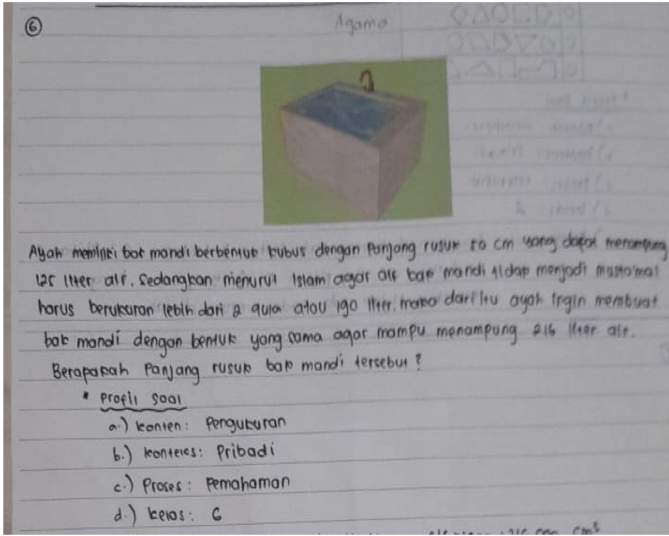 6
Agama
Ayah memiliki bak mandi berbentuk kubus dengan panjang rusuk 50 cm yang dapat menampung
125 liter air. Sedangkan menurut Islam agar air bak mandi tidap menjadi musta'mal
harus berukuran lebih dari 2 qula atau 190 liter. maka dari itu ayah ingin membuat
bak mandi dengan bentuk yang sama agar mampu menampung 216 liter air.
Berapakah panjang rusuk bak mandi tersebut?
* Profil soal
a.) konten: Pengukuran
b.) konteks: Pribadi
c.) Proses: Pemahaman
d.) kelas: 6
cm³